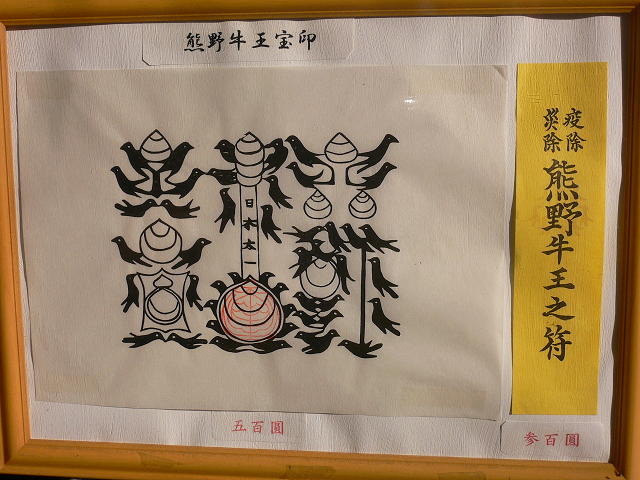 熊野牛王宝印
日本太一
五百圓
疫除
災除
熊野牛王之符
参百圓